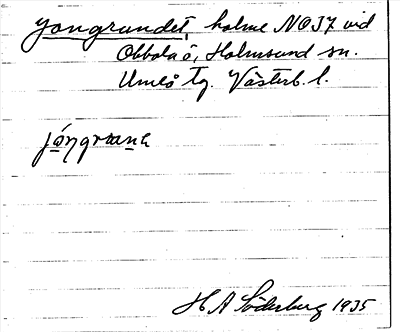 Jongrundet, holme NO37 vid
Obbola ö, Holmsund sn.
Umeå tg. Västerb. l.
jóŋgrɯnɛ
H A Söderberg 1935